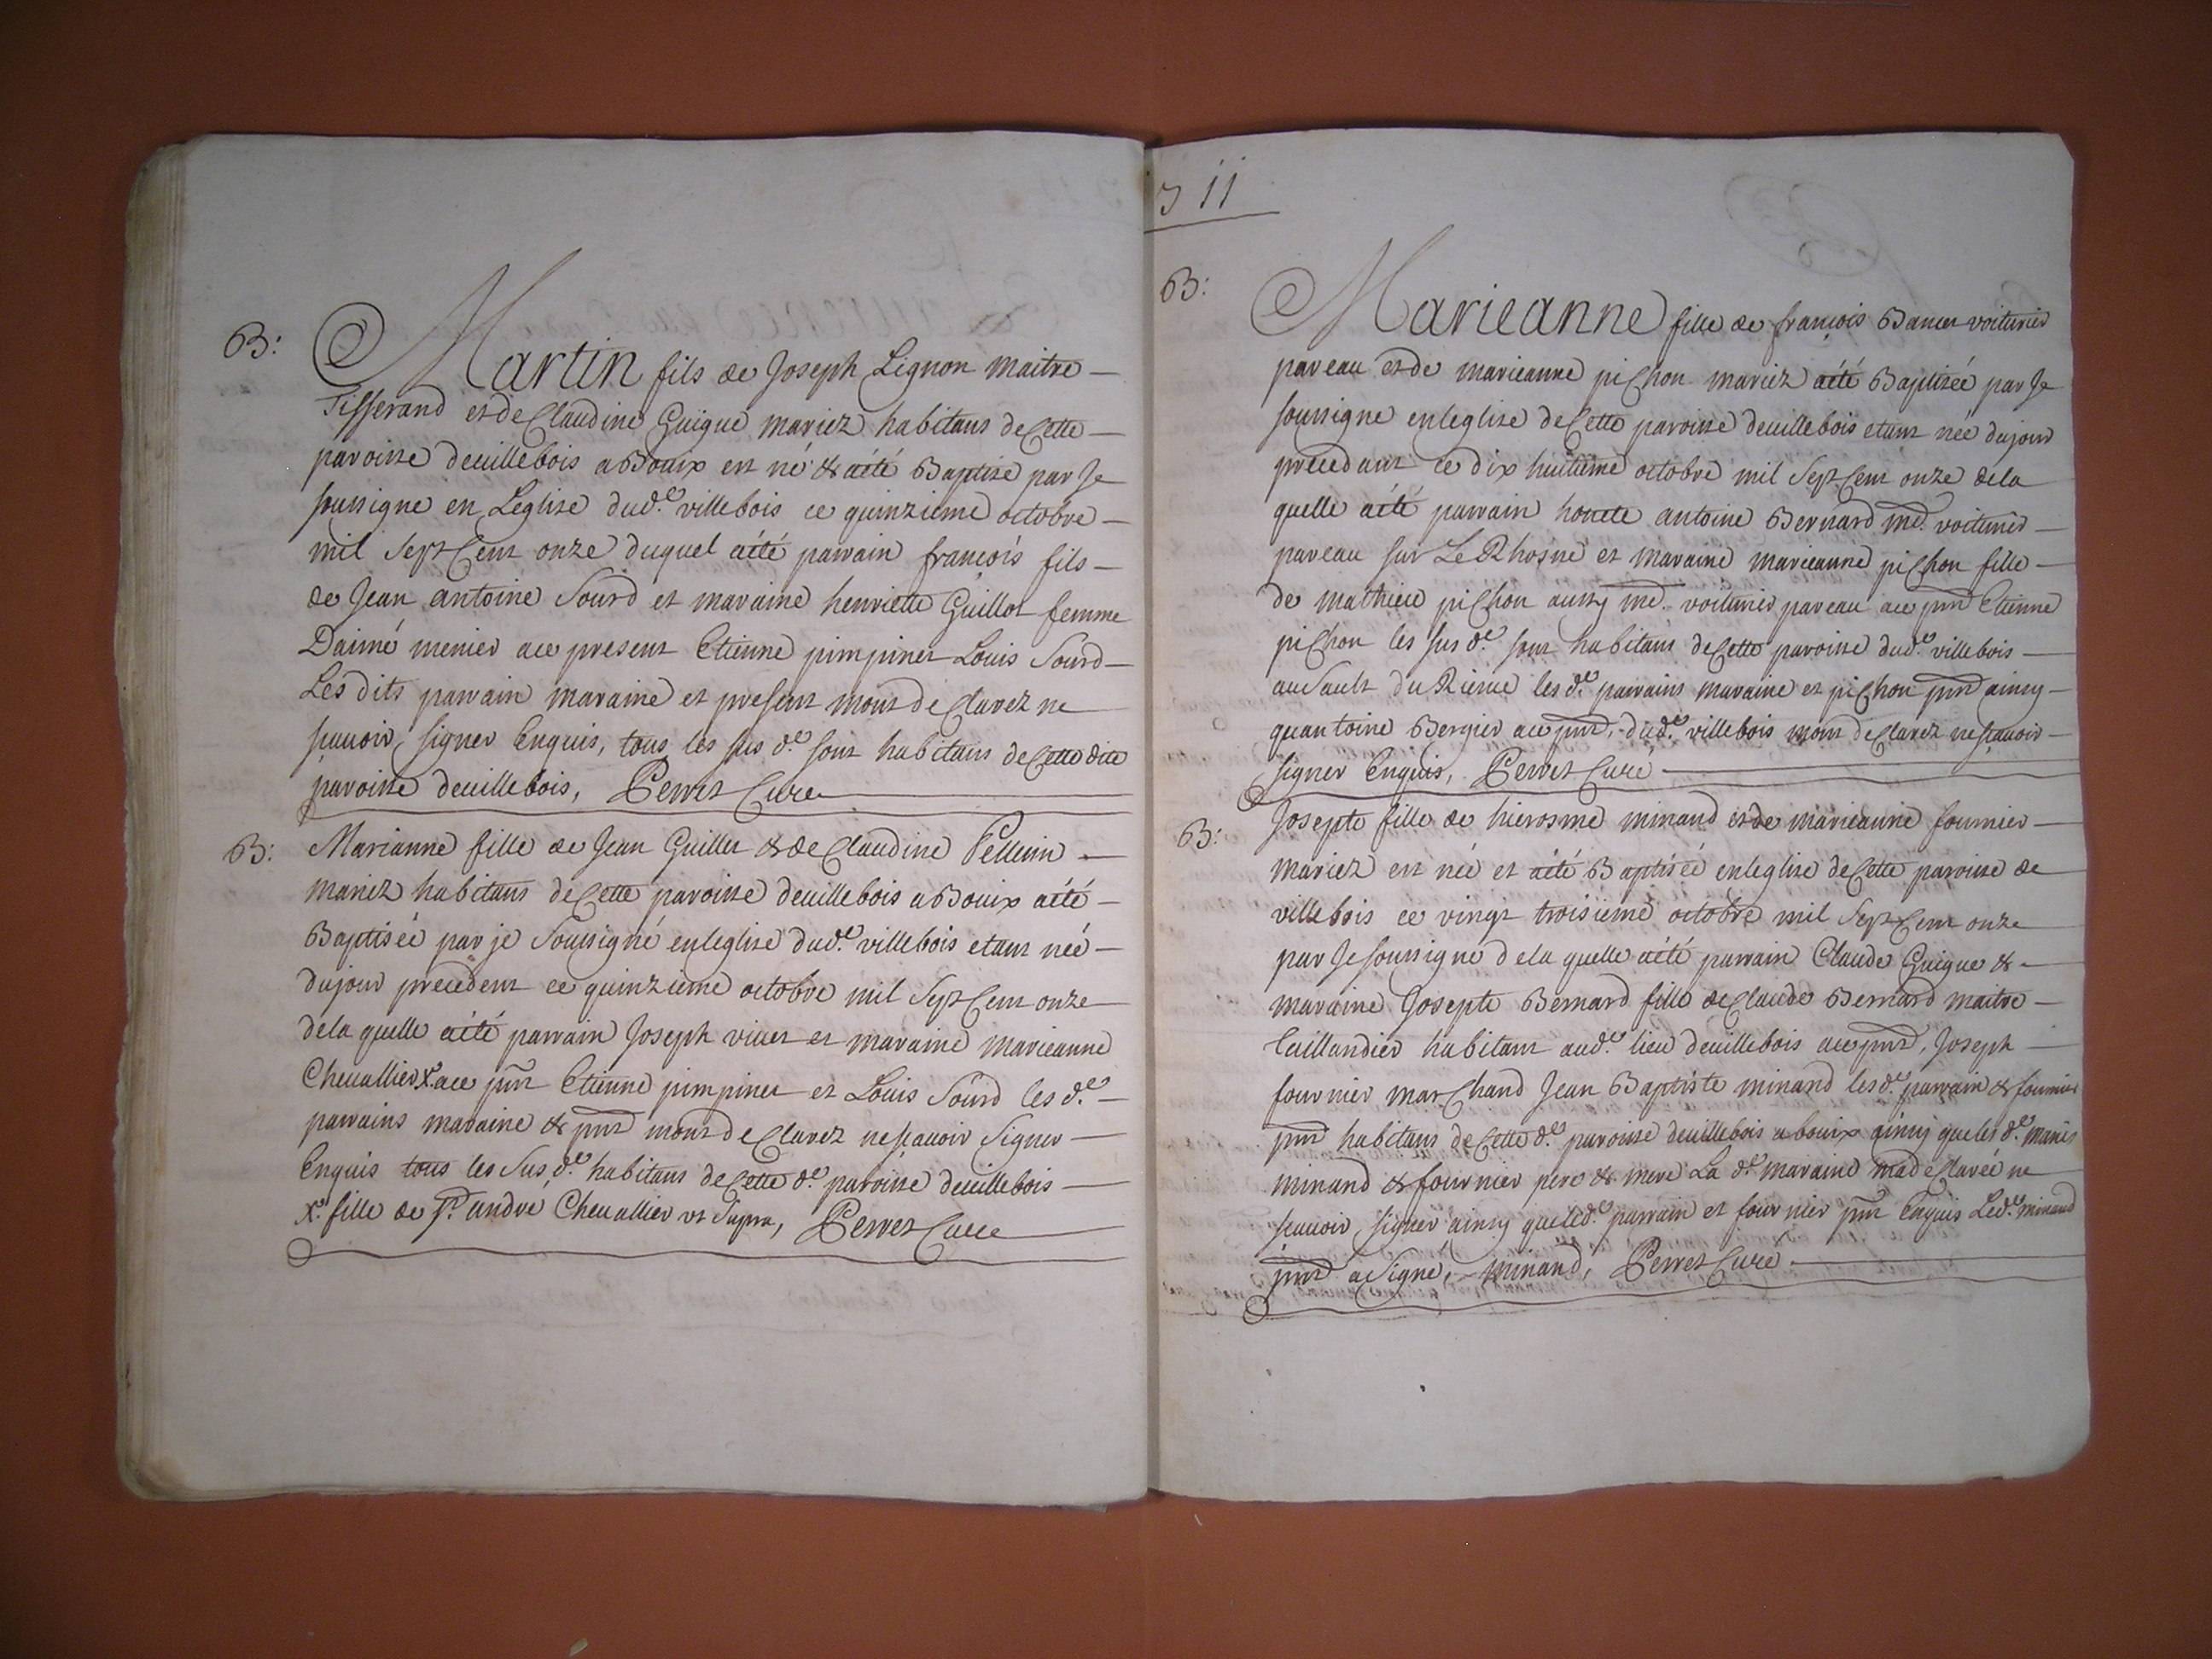 B:
Martin fils de Joseph Lignon maitre
Tisserand et de Claudine Guigue mariez habitans de Cette
paroisse de uillebois a Bouix est né & aété Baptise par Je
soussigne en Leglise dud.e villebois ce quinzieme octobre
mil Sept Cent onze duquel aété parrain francois fils
de Jean antoine Sourd et maraine henriette Guillot femme
Daimé menier ace present Etienne pimpinet Louis Sourd
Les dits parrain maraine et present mont de Clarez ne
scauoir signer Enquis, tous les sus d.e sont habitans de Cette dite
paroisse deuillebois, Perret Cure
B:
Marianne fille de Jean Guillet & de Claudine Pellerin
mariez habitans de Cette paroisse deuillebois a Bouix aété
Baptiseé par je Soussigné enleglise dud.e villebois etant neé
dujour precedent ce quinzieme octobre mil Sept Cent onze
dela quelle aété parrain Joseph viuet et maraine marieanne
Cheuallier X.e ace pnt Etienne pimpinet et Louis Sourd les d.e
parrains maraine & pnt mont de Clarez nescauoir Signer
Enquis tous les Sus d.e habitans de Cette d.e paroisse deuillebois
X.e fille de Sr. andre Cheuallier vt Supra, Perret Cure
711
B:
Marieanne fille de francois Banet voiturier
par eau et de marieanne piChon mariez aété Baptiseé par Je
soussigne enleglise de Cette paroisse deuillebois etant neé dujour
precedant ce dix huitieme octobre mil Sept Cent onze dela
quelle aété parrain honete antoine Bernard md. voiturier
pareau sur Le Rhosne et maraine marieanne piChon fille
de mathieu piChon aussy md. voiturier pareau ace pnt Etienne
piChon les sus d.e sont habitans de Cette paroisse dud.e villebois
au Sault du Rieme les d.e parrains maraine et piChon pnt ainsy
quantoine Bergier ace pnt, dud.e villebois mont de Clarez nescauoir
signer Enquis, Perret Curé
B:
Josepte fille de hierosme minand et de marieanne fournier
mariez est neé et aété Baptiseé enleglise de Cette paroisse de
villebois ce vingt troisieme octobre mil Sept Cent onze
par Je soussigne dela quelle aété parrain Claude Guigue &
maraine Josepte Bernard fille de Claude Bernard maitre
taillandier habitant aud.e lieu deuillebois ace pnt, Joseph
fournier marChand Jean Baptiste minand les d.e parrain & fournier
pnt habitans de Cette d.e paroisse deuillebois a bouix ainsy que les d.e mariés
minand & fournier pere & mere La d.e maraine ma de Clareé ne
scauoir signer ainsy que led.e parrain et fournier pnt Enquis Led.e minand
pnt a signé, minand, Perret Curé